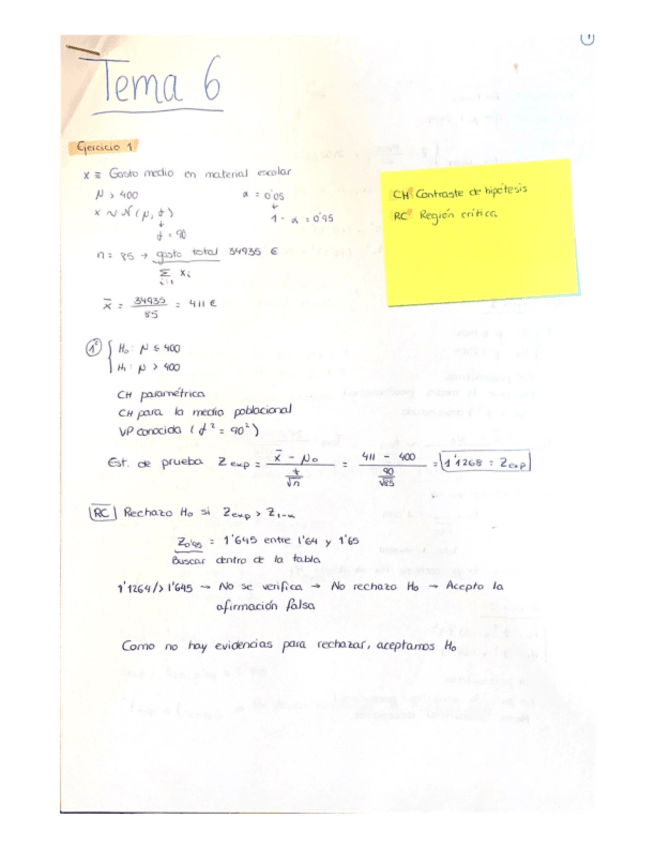 1
Tema 6
Ejercicio 1
x ≡ Gasto medio en material escolar
μ > 400
α = 0'05
x ~ N (μ, σ)
1 - α = 0'95
σ = 90
n = 85 → gasto total 34935 €
Σ xᵢ
i=1
x̄ = 34935 / 85 = 411 €
CH: Contraste de hipótesis
RC: Región crítica
1º { H₀: μ ≤ 400
H₁: μ > 400
CH paramétrica
CH para la media poblacional
VP conocida (σ² = 90²)
Est. de prueba Z exp = (x̄ - μ₀) / (σ / √n) = (411 - 400) / (90 / √85) = 1'1268 = Z exp
RC Rechazo H₀ si Z exp > Z 1-α
Z 0'95 = 1'645 entre 1'64 y 1'65
Buscar dentro de la tabla
1'1264 ≯ 1'645 → No se verifica → No rechazo H₀ → Acepto la
afirmación falsa
Como no hay evidencias para rechazar, aceptamos H₀